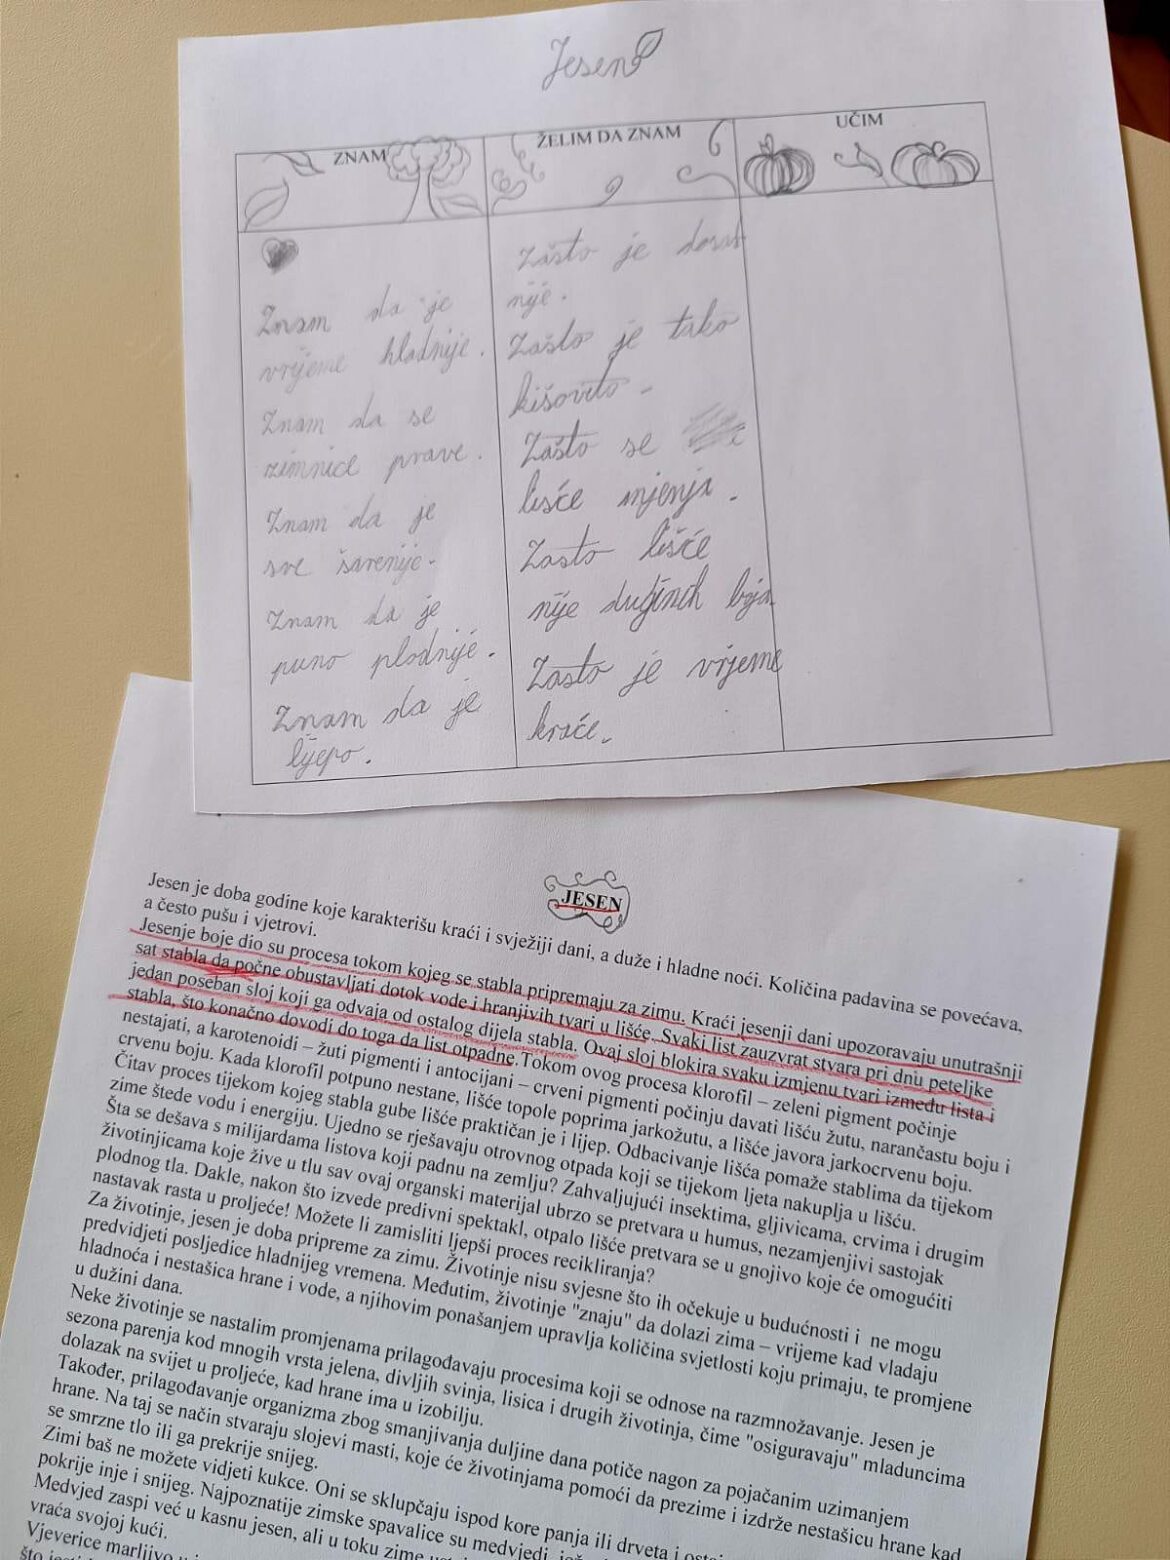 Jesen
ZNAM
ŽELIM DA ZNAM
UČIM
Znam da je
vrijeme hladnije.
Znam da se
zimnice prave.
Znam da je
sve šarenije.
Znam da je
puno plodnije.
Znam da je
lijepo.
Zašto je
nije.
Zašto je tako
kišovito.
Zašto se
lišće mjenja.
Zasto lišće
nije duginih boja
Zasto je vrijeme
kraće.
JESEN
Jesen je doba godine koje karakterišu kraći i svježiji dani, a duže i hladne noći. Količina padavina se povećava,
a često pušu i vjetrovi.
Jesenje boje dio su procesa tokom kojeg se stabla pripremaju za zimu. Kraći jesenji dani upozoravaju unutrašnji
sat stabla da počne obustavljati dotok vode i hranjivih tvari u lišće. Svaki list zauzvrat stvara pri dnu peteljke
jedan poseban sloj koji ga odvaja od ostalog dijela stabla. Ovaj sloj blokira svaku izmjenu tvari između lista i
stabla, što konačno dovodi do toga da list otpadne. Tokom ovog procesa klorofil – zeleni pigment počinje
nestajati, a karotenoidi – žuti pigmenti i antocijani – crveni pigmenti počinju davati lišću žutu, narančastu boju i
crvenu boju. Kada klorofil potpuno nestane, lišće topole poprima jarkožutu, a lišće javora jarkocrvenu boju.
Čitav proces tijekom kojeg stabla gube lišće praktičan je i lijep. Odbacivanje lišća pomaže stablima da tijekom
zime štede vodu i energiju. Ujedno se rješavaju otrovnog otpada koji se tijekom ljeta nakuplja u lišću.
Šta se dešava s milijardama listova koji padnu na zemlju? Zahvaljujući insektima, gljivicama, crvima i drugim
životinjicama koje žive u tlu sav ovaj organski materijal ubrzo se pretvara u humus, nezamjenjivi sastojak
plodnog tla. Dakle, nakon što izvede predivni spektakl, otpalo lišće pretvara se u gnojivo koje će omogućiti
nastavak rasta u proljeće! Možete li zamisliti ljepši proces recikliranja?
Za životinje, jesen je doba pripreme za zimu. Životinje nisu svjesne što ih očekuje u budućnosti i ne mogu
predvidjeti posljedice hladnijeg vremena. Međutim, životinje "znaju" da dolazi zima – vrijeme kad vladaju
hladnoća i nestašica hrane i vode, a njihovim ponašanjem upravlja količina svjetlosti koju primaju, te promjene
u dužini dana.
Neke životinje se nastalim promjenama prilagođavaju procesima koji se odnose na razmnožavanje. Jesen je
sezona parenja kod mnogih vrsta jelena, divljih svinja, lisica i drugih životinja, čime "osiguravaju" mladuncima
dolazak na svijet u proljeće, kad hrane ima u izobilju.
Također, prilagođavanje organizma zbog smanjivanja duljine dana potiče nagon za pojačanim uzimanjem
hrane. Na taj se način stvaraju slojevi masti, koje će životinjama pomoći da prezime i izdrže nestašicu hrane kad
se smrzne tlo ili ga prekrije snijeg.
Zimi baš ne možete vidjeti kukce. Oni se sklupčaju ispod kore panja ili drveta i
pokrije inje i snijeg. Najpoznatije zimske spavalice su medvjedi,
Medvjed zaspi već u kasnu jesen, ali u toku zime
vraća svojoj kući.
Vjeverice marljivo
što